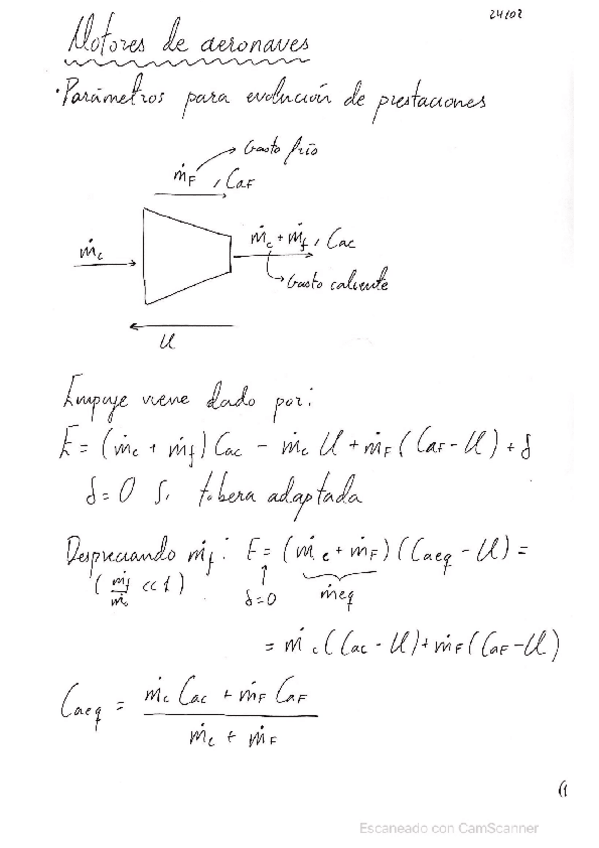 24/02
Motores de aeronaves
· Parámetros para evolución de prestaciones
Gasto frío
ṁF , CaF
ṁc
ṁc + ṁf, Cac
Gasto caliente
U
Empuje viene dado por:
E = (ṁc + ṁf) Cac - ṁc U + ṁF (CaF - U) + δ
δ = 0 Si tobera adaptada
Despreciando ṁf: E = (ṁc + ṁF) (Caeq - U) =
(ṁf/ṁc << 1) δ=0 ṁeq
= ṁc (Cac - U) + ṁF (CaF - U)
Caeq = ṁc Cac + ṁF CaF
ṁc + ṁF
(1
Escaneado con CamScanner